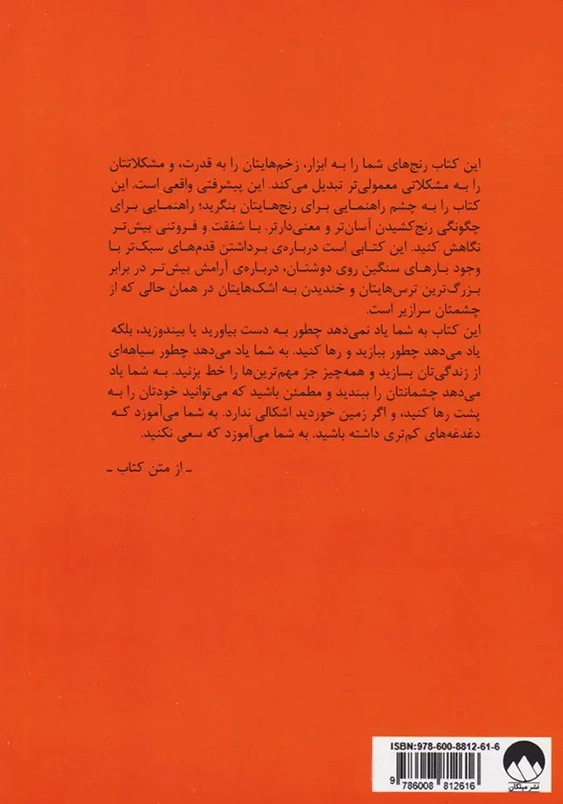 این کتاب رنج‌های شما را به ابزار، زخم‌هایتان را به قدرت، و مشکلاتتان
را به مشکلاتی معمولی‌تر تبدیل می‌کند. این پیشرفتی واقعی است. این
کتاب را به چشم راهنمایی برای رنج‌هایتان بنگرید؛ راهنمایی برای
چگونگی رنج‌کشیدن آسان‌تر و معنی‌دارتر. با شفقت و فروتنی بیش‌تر
نگاهش کنید. این کتابی است درباره‌ی برداشتن قدم‌های سبک‌تر با
وجود بارهای سنگین روی دوشتان، درباره‌ی آرامش بیش‌تر در برابر
بزرگ‌ترین ترس‌هایتان و خندیدن به اشک‌هایتان در همان حالی که از
چشمتان سرازیر است.
این کتاب به شما یاد نمی‌دهد چطور به دست بیاورید یا بیندوزید، بلکه
یاد می‌دهد چطور ببازید و رها کنید. به شما یاد می‌دهد چطور سیاهه‌ای
از زندگی‌تان بسازید و همه‌چیز جز مهم‌ترین‌ها را خط بزنید. به شما یاد
می‌دهد چشمانتان را ببندید و مطمئن باشید که می‌توانید خودتان را به
پشت رها کنید، و اگر زمین خوردید اشکالی ندارد. به شما می‌آموزد که
دغدغه‌های کم‌تری داشته باشید. به شما می‌آموزد که سعی نکنید.
ـ از متن کتاب ـ
ISBN:978-600-8812-61-6
9 786008 812616
نشر میلکان